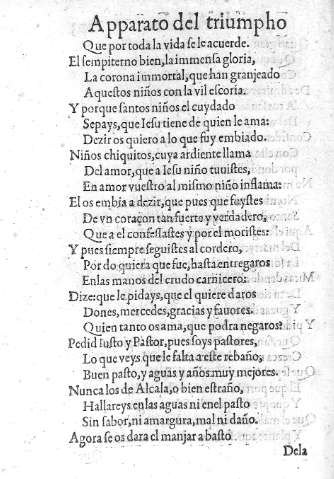 Apparato del triumpho
Que por toda la vida se le acuerde.
El sempiterno bien, la immensa gloria,
La corona immortal, que han granjeado
Aquestos niños con la vil escoria.
Y porque santos niños el cuydado
Sepays, que Iesu tiene de quien le ama:
Deziros quiero a lo que fuy embiado.
Niños chiquitos, cuya ardiente llama
Del amor, que a Iesu niño tuuistes,
En amor vuestro al mismo niño inflama:
El os embia a dezir, que pues que fuystes
De vn coraçon tan fuerte y verdadero,
Que a el confessastes y por el moristes:
Y pues siempre seguistes al cordero,
Por do quiera que fue, hasta entregaros
En las manos del crudo carnicero:
Dize: que le pidays, que el quiere daros
Dones, mercedes, gracias y fauores.
Quien tanto os ama, que podra negaros?
Pedid Iusto y Pastor, pues soys pastores,
Lo que veys que le falta a este rebaño,
Buen pasto, y aguas y años muy mejores.
Nunca los de Alcala, o bien estraño,
Hallareys en las aguas ni en el pasto
Sin sabor, ni amargura, mal ni daño.
Agora se os dara el manjar a basto
Dela